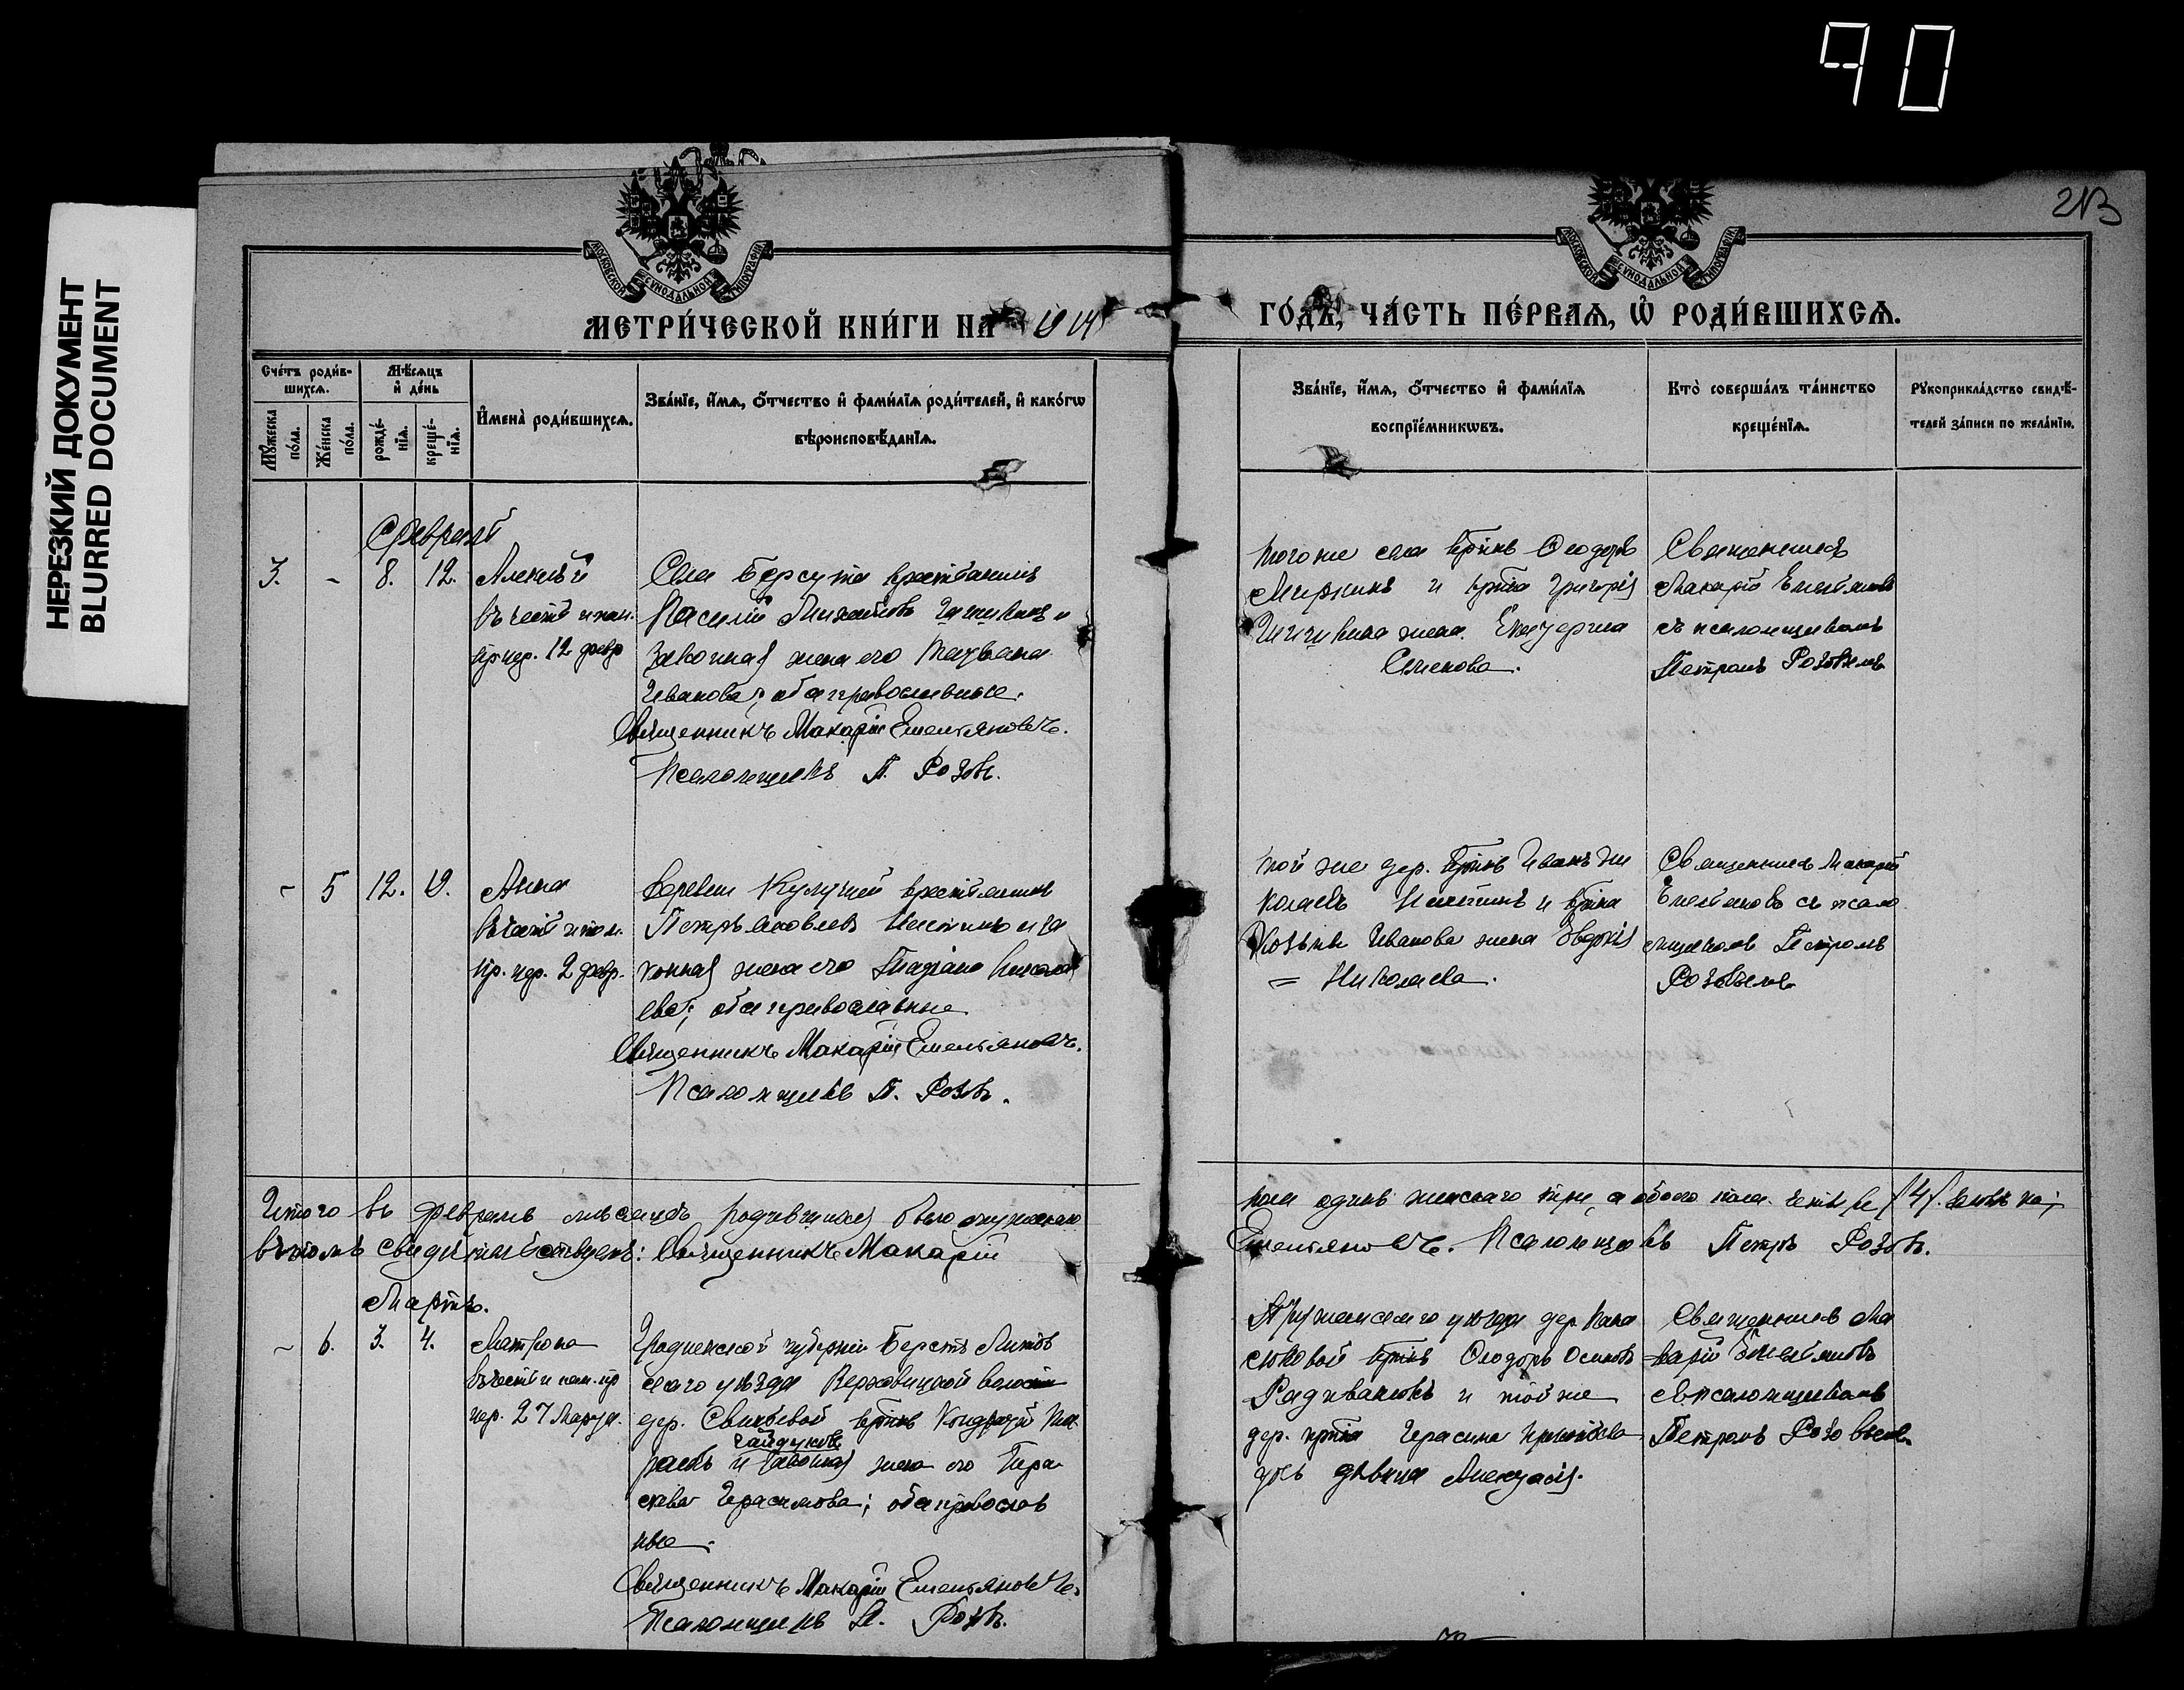 90
НЕРЕЗКИЙ ДОКУМЕНТ
BLURRED DOCUMENT
213
МОСКОВСКОЙ СѴНОДАЛЬНОЙ ТИПОГРАФІИ
МОСКОВСКОЙ СѴНОДАЛЬНОЙ ТИПОГРАФІИ
МЕТРИ́ЧЕСКОЙ КНИ́ГИ НА 1914
ГО́ДЪ, ЧА́СТЬ ПЕ́РВАѦ, Ѽ РОДИ́ВШИХСѦ.
Сче́тъ роди́в-
шихсѧ.
Мꙋ́жеска по́ла.
Же́нска по́ла.
Мѣ́сѧцъ
и҆ де́нь
рожде́-
нїѧ.
креще́-
нїѧ.
И҆мена̀ роди́вшихсѧ.
Зва́нїе, и҆́мѧ, ѻ҆́тчество и҆ фами́лїѧ роди́телей, и҆ како́гѡ
вѣроисповѣ́данїѧ.
Зва́нїе, и҆́мѧ, ѻ҆́тчество и҆ фами́лїѧ
воспрїе́мникѡвъ.
Кто̀ соверша́лъ та́инство
креще́нїѧ.
Рꙋкоприкла́дство свидѣ́-
телей за́писи по жела́нїю.
Февраль
3. - 8. 12.
Алексѣй
въ честь и пам.
пр. цер. 12 февр
Села Берсута крестьянинъ
Василій Михайловъ и
законная жена его Татьяна
Иванова; оба православные.
Священникъ Макарій Емельяновъ.
Псаломщикъ П. Розовъ.
того же села кр-нъ Ѳеодоръ
и кр-на Григорія
жена Екатерина
Семенова.
Священникъ
Макарій Емельяновъ
съ псаломщикомъ
Петромъ Розовымъ
- 5 12.
Анна
въ честь и пам.
пр. цер. 2 февр.
деревни крестьянинъ
Петръ Яковлевъ и за
конная жена его Николa
ева; оба православные
Священникъ Макарій Емельяновъ.
Псаломщикъ П. Розовъ.
той же дер. кр-нъ Иванъ Ни
колаевъ и кр-на
Иванова жена Евдокія
= Николаева.
Священникъ Макарій
Емельяновъ съ псало
мщикомъ Петромъ
Розовымъ
Итого въ февралѣ мѣсяцѣ родившихся было мужескаго
пола одинъ женскаго три, а обоего пола четыре /4/ человѣка;
въ томъ свидѣтельствуемъ: Священникъ Макарій
Емельяновъ. Псаломщикъ Петръ Розовъ.
Мартъ.
- 6. 3. 4.
Матрона
въ честь и пам. пр
цер. 27 Марта.
Гродненской губерніи Берстъ Литов
скаго уѣзда Верховицкой волости
дер. кр-нъ Кондратій
Гайдуковъ
и законная жена его Пара
скева Герасимова; оба православ
ные.
Священникъ Макарій Емельяновъ.
Псаломщикъ П. Розовъ.
Пружанскаго уѣзда дер.
кр-нъ Ѳеодоръ Осиповъ
и той же
дер. кр-на Герасима
дочь дѣвица
Священникъ Ма
карій Емельяновъ
съ псаломщикомъ
Петромъ Розовымъ